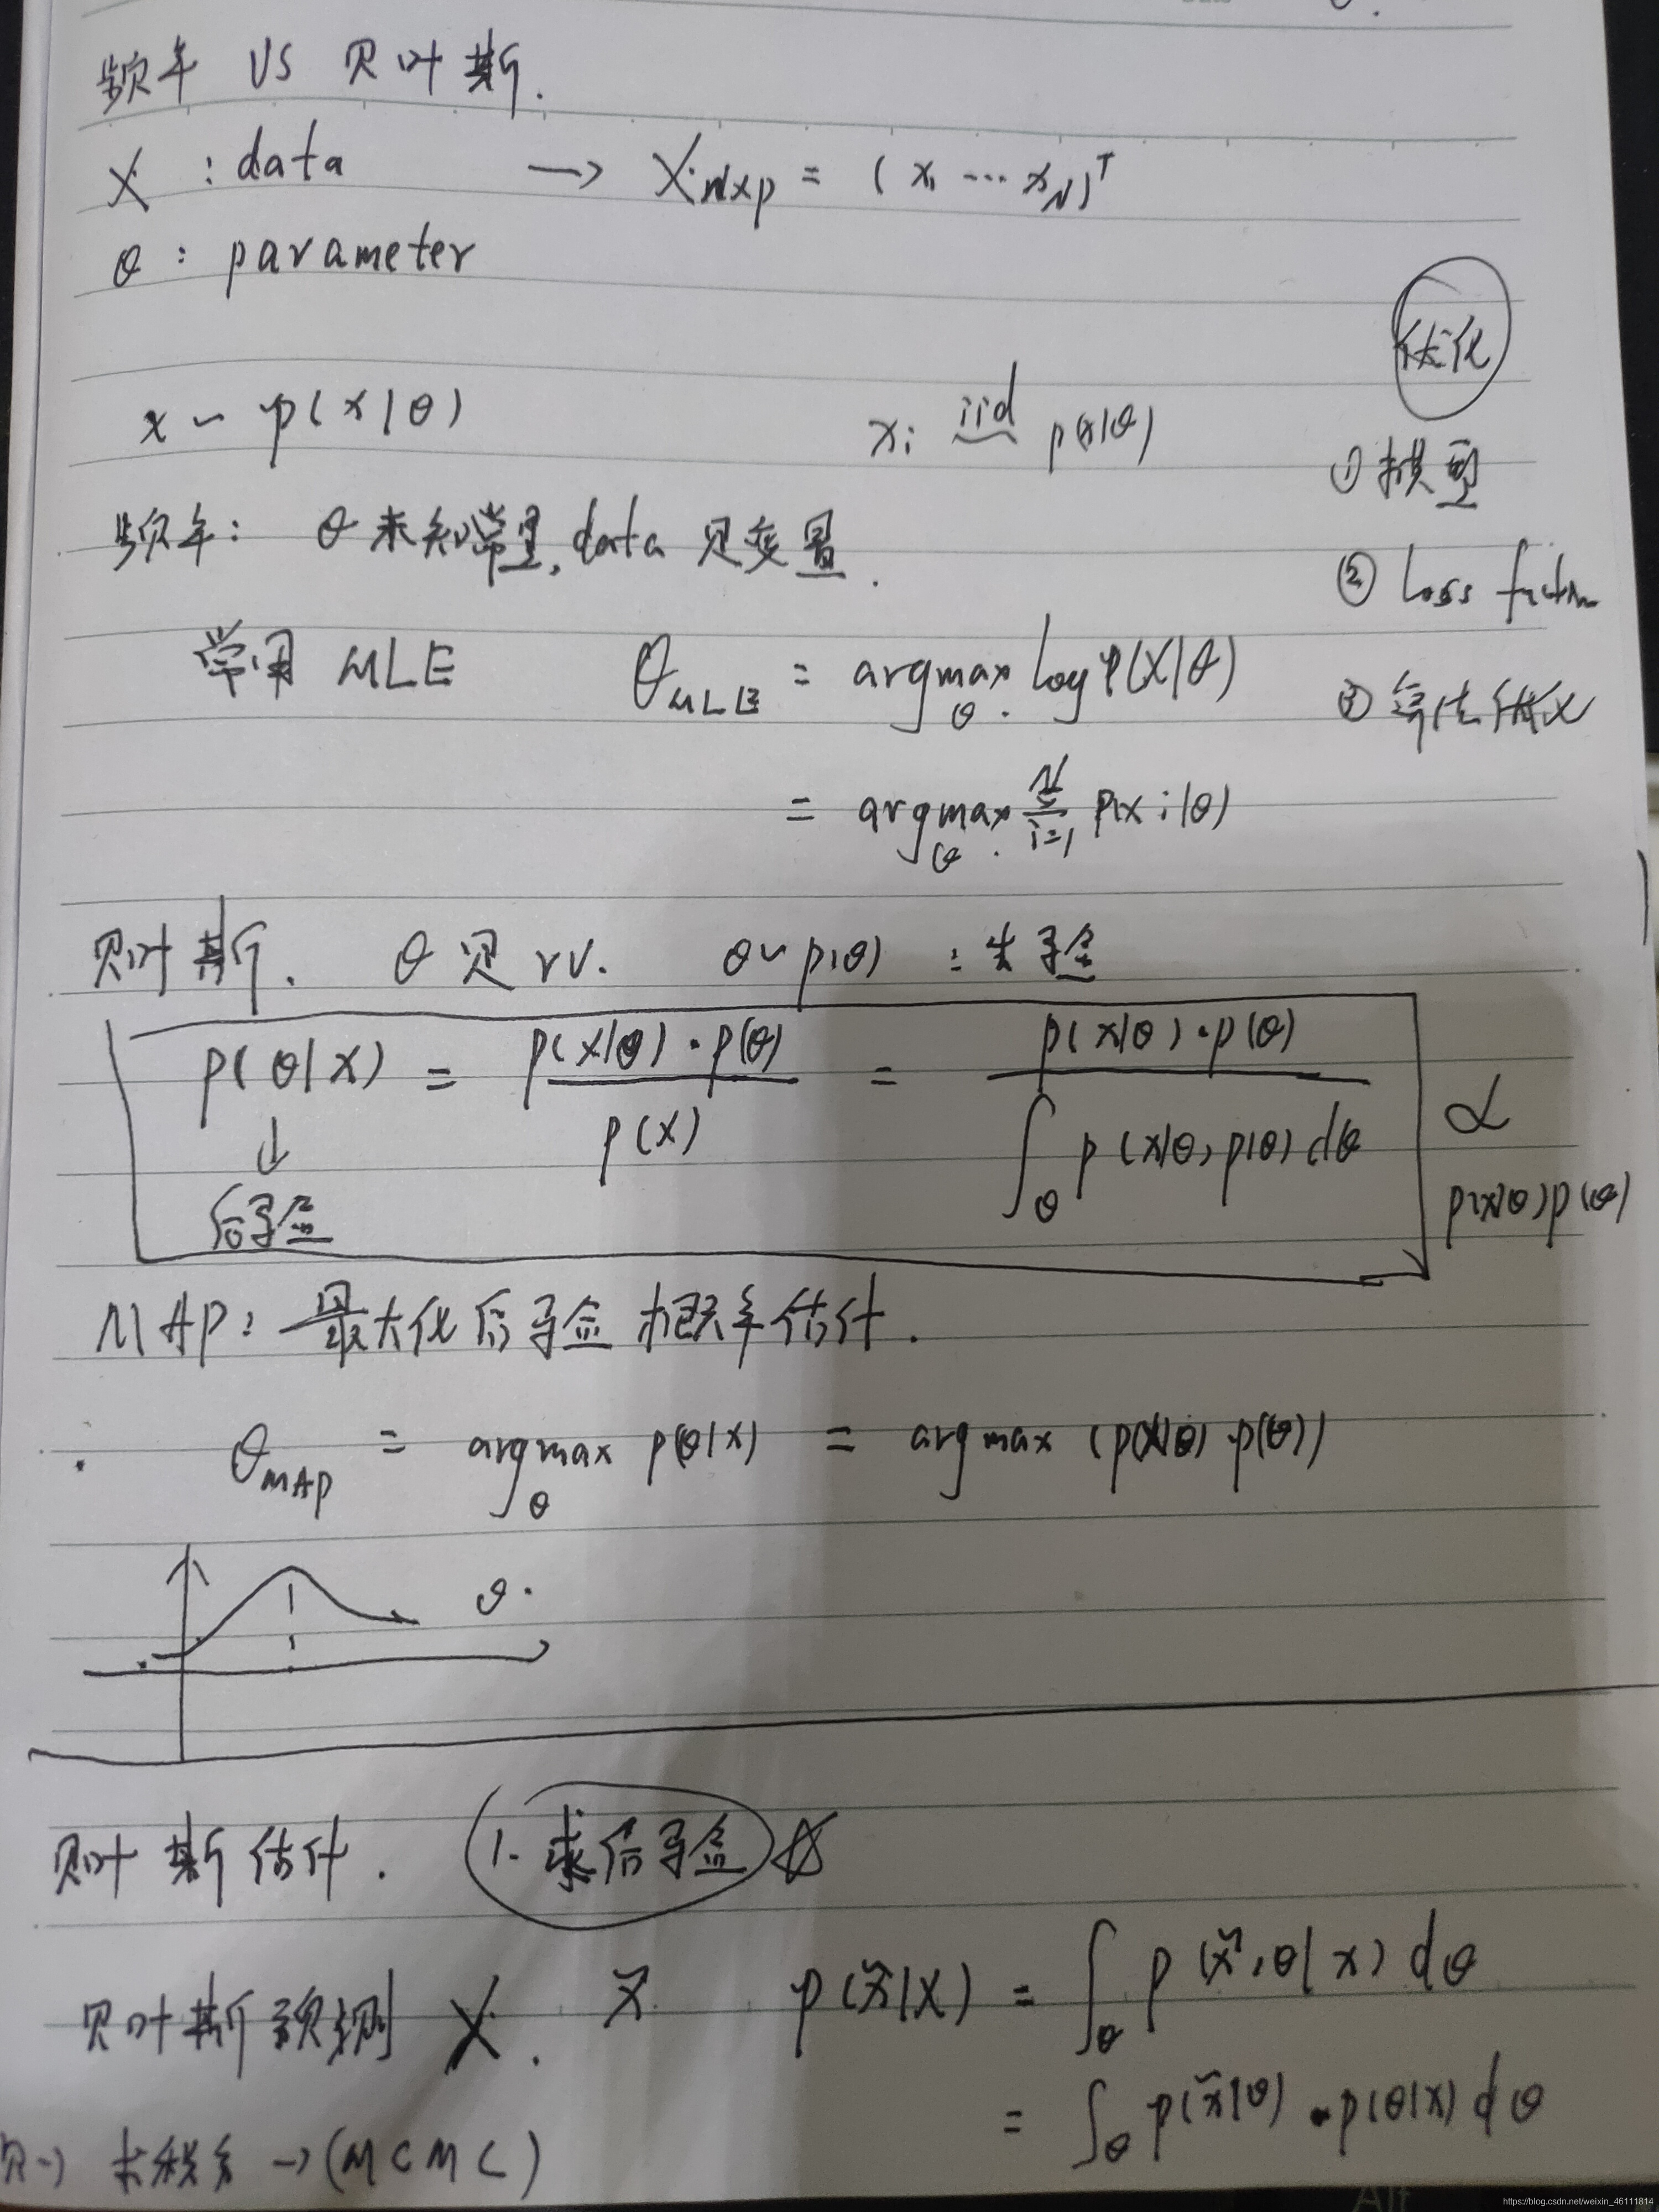 频率 VS 贝叶斯.
X : data → X_{N×p} = (x_1 ··· x_N)^T
θ : parameter
优化
x ~ p(x|θ)
x_i iid~ p(x|θ)
① 模型
频率: θ 未知常量, data 是变量.
② Loss
常用 MLE θ_{MLE} = argmax_θ. log P(X|θ)
③ 算法优化
= argmax_θ. Σ_{i=1}^{N} p(x_i|θ)
贝叶斯. θ 是 rv. θ ~ p(θ) : 先验
p(θ|X) = p(X|θ)·p(θ) / p(X) = p(X|θ)·p(θ) / ∫_θ p(X|θ) p(θ) dθ
∝ p(x|θ) p(θ)
↓
后验
MAP: 最大化后验概率估计.
θ_{MAP} = argmax_θ p(θ|x) = argmax (p(X|θ)·p(θ))
θ.
贝叶斯估计. 1. 求后验 ☆
贝叶斯预测 X. x̃ p(x̃|X) = ∫_θ p(x̃,θ|x) dθ
= ∫_θ p(x̃|θ)·p(θ|x) dθ
贝→ 求积分 → (MCMC)
https://blog.csdn.net/weixin_46111814